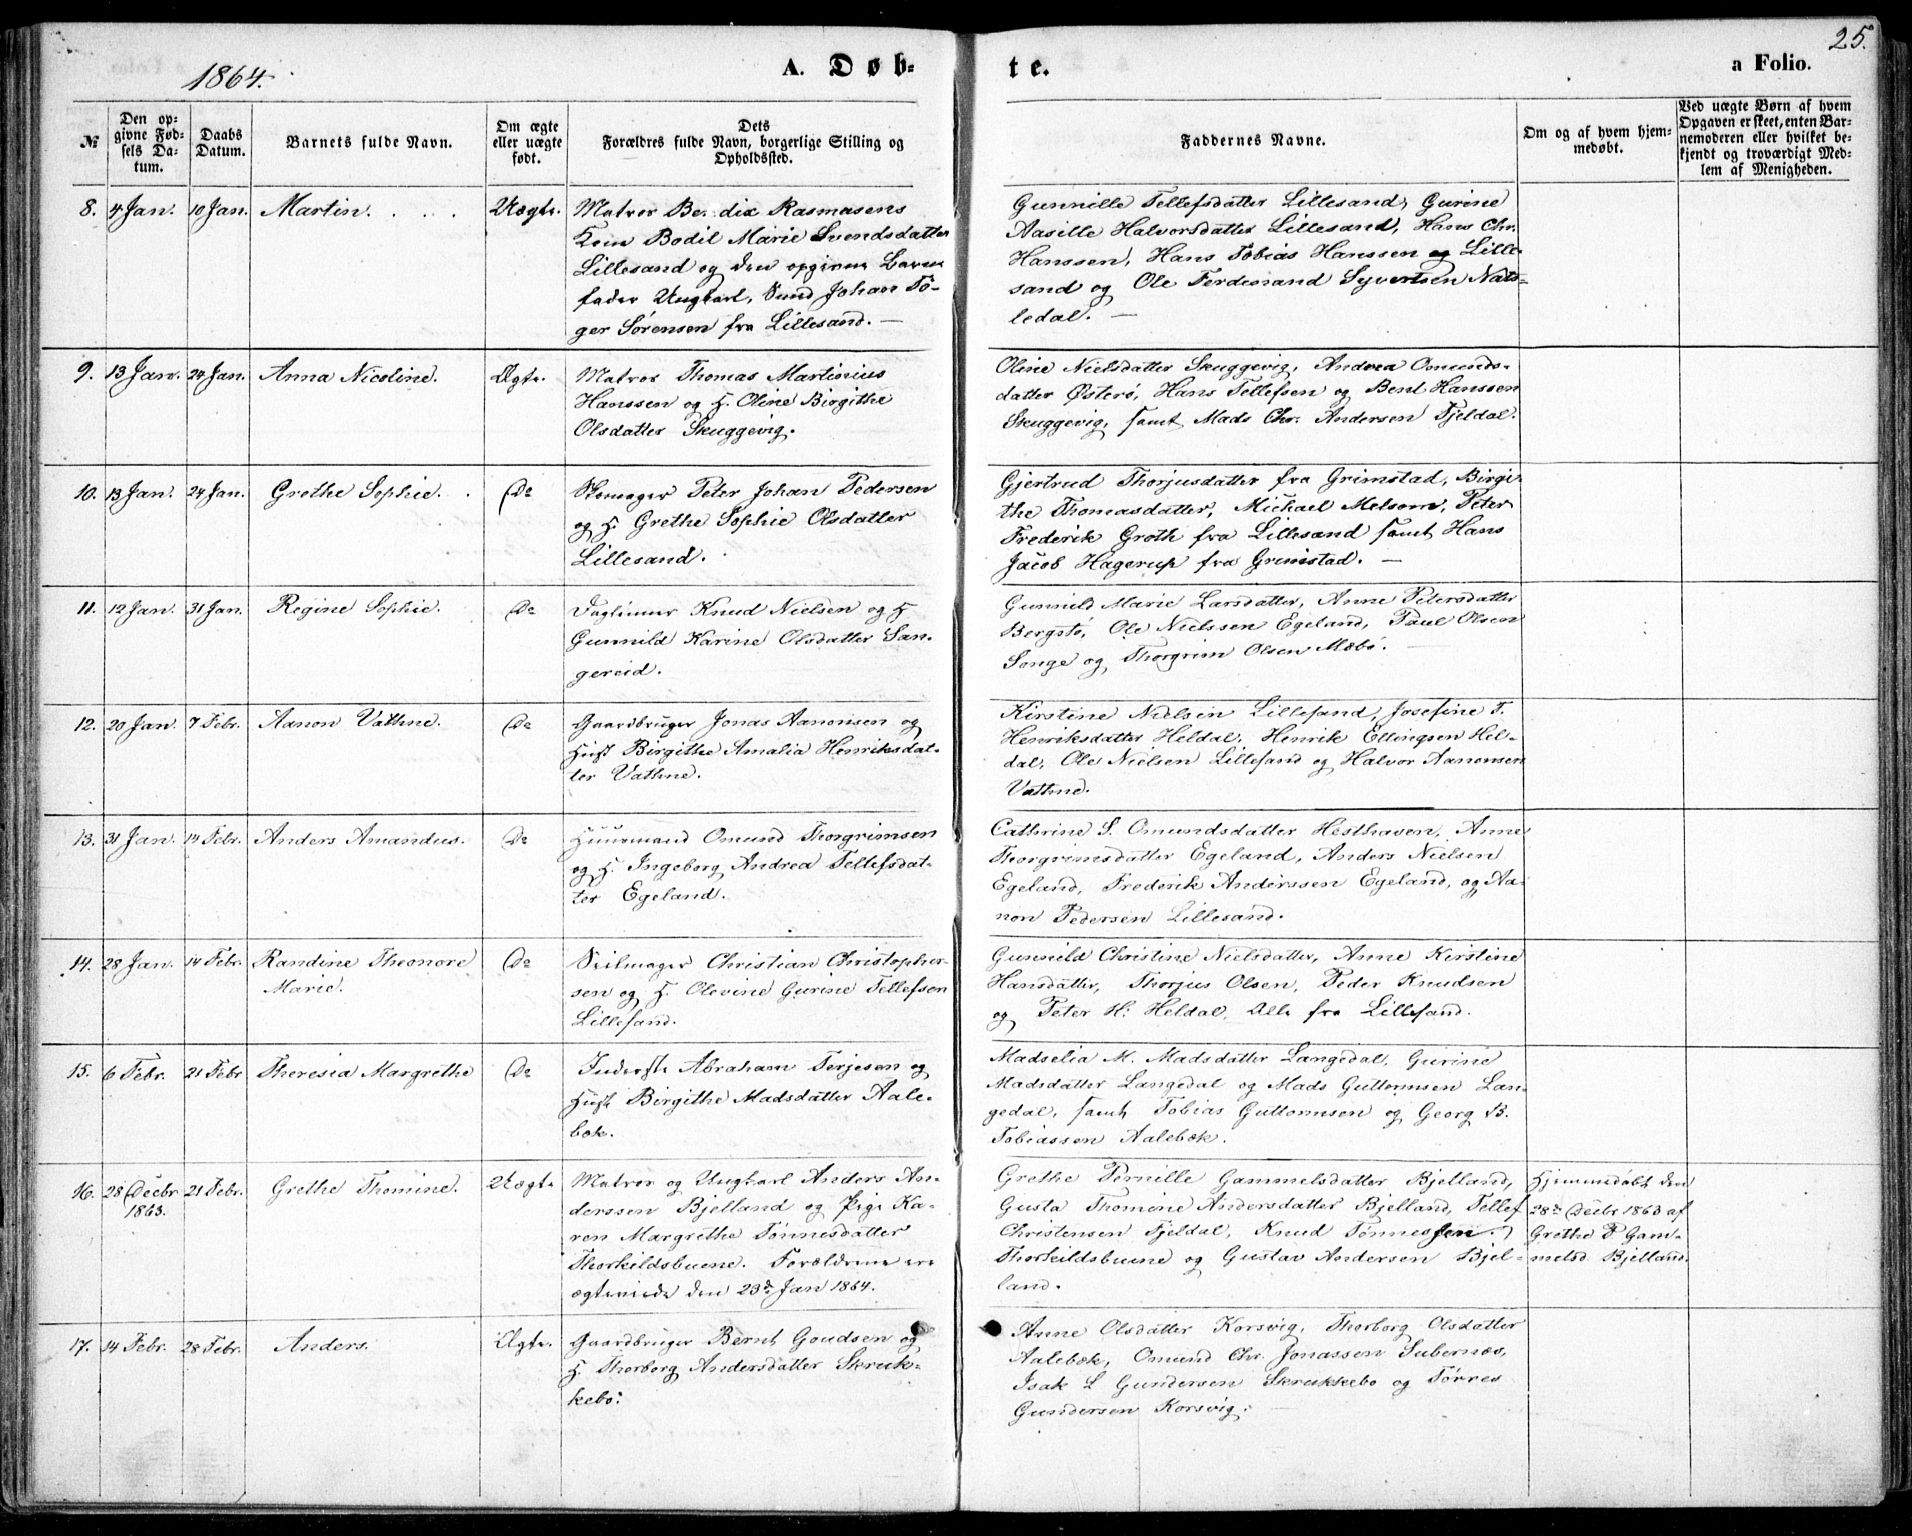 1864.
A. Døb-
te.
25.
a Folio.
№
Den op-
givne Fød-
sels Da-
tum.
Daabs
Datum.
Barnets fulde Navn.
Om ægte
eller uægte
født.
Dets
Forældres fulde Navn, borgerlige Stilling og
Opholdssted.
Faddernes Navne.
Om og af hvem hjem-
medøbt.
Ved uægte Børn af hvem
Opgaven er skeet, enten Bar-
nemoderen eller hvilket be-
kjendt og troværdigt Med-
lem af Menigheden.
8. 4 Jan. 10 Jan. Martin. . . . Uægte.
Matros Bendix Rasmusens
Kone Bodil Marie Svendsdatter
Lillesand og den opgivne Barne
fader Ungkarl, Johan Tø-
ger Sørensen fra Lillesand. —
Gunnille Tellefsdatter Lillesand, Gurine
Aasille Halvorsdatter Lillesand, Hans Chr.
Hanssen, Hans Tobias Hanssen og Lille-
sand og Ole Ferdinand Syvertsen Nats-
ledal. —
9. 13 Jan. 24 Jan. Anna Nicoline. Ægte.
Matros Thomas Martinius
Hanssen og H. Oline Birgithe
Olsdatter Skuggevig.
Oline Nielsdatter Skuggevig, Andrea Omunds-
datter Østerø, Hans Tellefsen og Bent Hanssen
Skuggevig, samt Mads Chr. Andersen Tjeldal.
10. 13 Jan. 24 Jan. Grethe Sophie. . Do
Skomager Peter Johan Pedersen
og H. Grethe Sophie Olsdatter
Lillesand.
Gjertrud Thorjusdatter fra Grimstad, Birgi-
the Thomasdatter, Michael Melsom, Peter
Frederik Groth fra Lillesand samt Hans
Jacob Hagerup fra Grimstad. —
11. 12 Jan. 31 Jan. Regine Sophie. Do
Daglønner Knud Nielsen og H
Gunnild Karine Olsdatter San-
gereid.
Gunnild Marie Larsdatter, Anne Petersdatter
Bergstø, Ole Nielssen Egeland, Paul Olsen
Songe og Thorgrim Olsen Mæbø. —
12. 20 Jan. 7 Febr. Aanon Vathne. Do
Gaardbruger Jonas Aanonsen og
Hust Birgithe Amalia Henriksdat-
ter Vathne.
Kirstine Nielsen Lillesand, Josefine T.
Henriksdatter Heldal, Henrik Ellingsen Hel-
dal, Ole Nielsen Lillesand og Halvor Aanonsen
Vathne.
13. 31 Jan. 14 Febr. Anders Amandus. Do
Huusmand Omund Thorgrimsen
og H. Ingeborg Andrea Tellefsdat-
ter Egeland.
Cathrine S. Omundsdatter Hesthaven, Anne
Thorgrimsdatter Egeland, Anders Nielsen
Egeland, Frederik Anderssen Egeland, og Aa-
non Pedersen Lillesand.
14. 28 Jan. 14 Febr. Randine Theonore
Marie. Do
Seilmager Christian Christopher-
sen og H. Olevine Gurine Tellefsen
Lillesand.
Gunnild Christine Nielsdatter, Anne Kirstine
Hansdatter, Thorjus Olsen, Peder Knudsen
og Peter H. Heldal, Alle fra Lillesand.
15. 6 Febr. 21 Febr Theresia Margrethe Do
Inderste Abraham Terjesen og
Hust Birgithe Madsdatter Aale-
bæk.
Madselia M. Madsdatter Langedal, Gurine
Madsdatter Langedal og Mads Guttormsen Lan-
gedal, samt Tobias Guttormsen og Georg B.
Tobiassen Aalebæk.
16. 28 Decbr
1863. 21 Febr. Grethe Thomine. Uægte
Matros og Ungkarl Anders An-
derssen Bjelland og Pige Ka-
ren Margrethe Tønnesdatter
Thorkildsbuene. Forældrene ere
ægteviede den 23de Jan 1864.
Grethe Pernille Gammelsdatter Bjelland,
Gusta Thomine Andersdatter Bjelland, Tellef
Christensen Tjeldal, Knud Tønnessen
Thorkildsbuene og Gustav Andersen Bjel-
land.
Hjemmedøbt den
28de Decbr 1863 af
Grethe P Gam-
melsd. Bjelland.
17. 14 Febr. 28 Febr. Anders. Ægte.
Gaardbruger Bernt Goudsen og
H. Thorborg Andersdatter Skruk-
kebø.
Anne Olsdatter Korsvig, Thorborg Olsdatter
Aalebæk, Omund Chr. Jonassen Subernæs,
Isak L Gundersen Skrukkebø og Tørres
Gundersen Korsvig. —